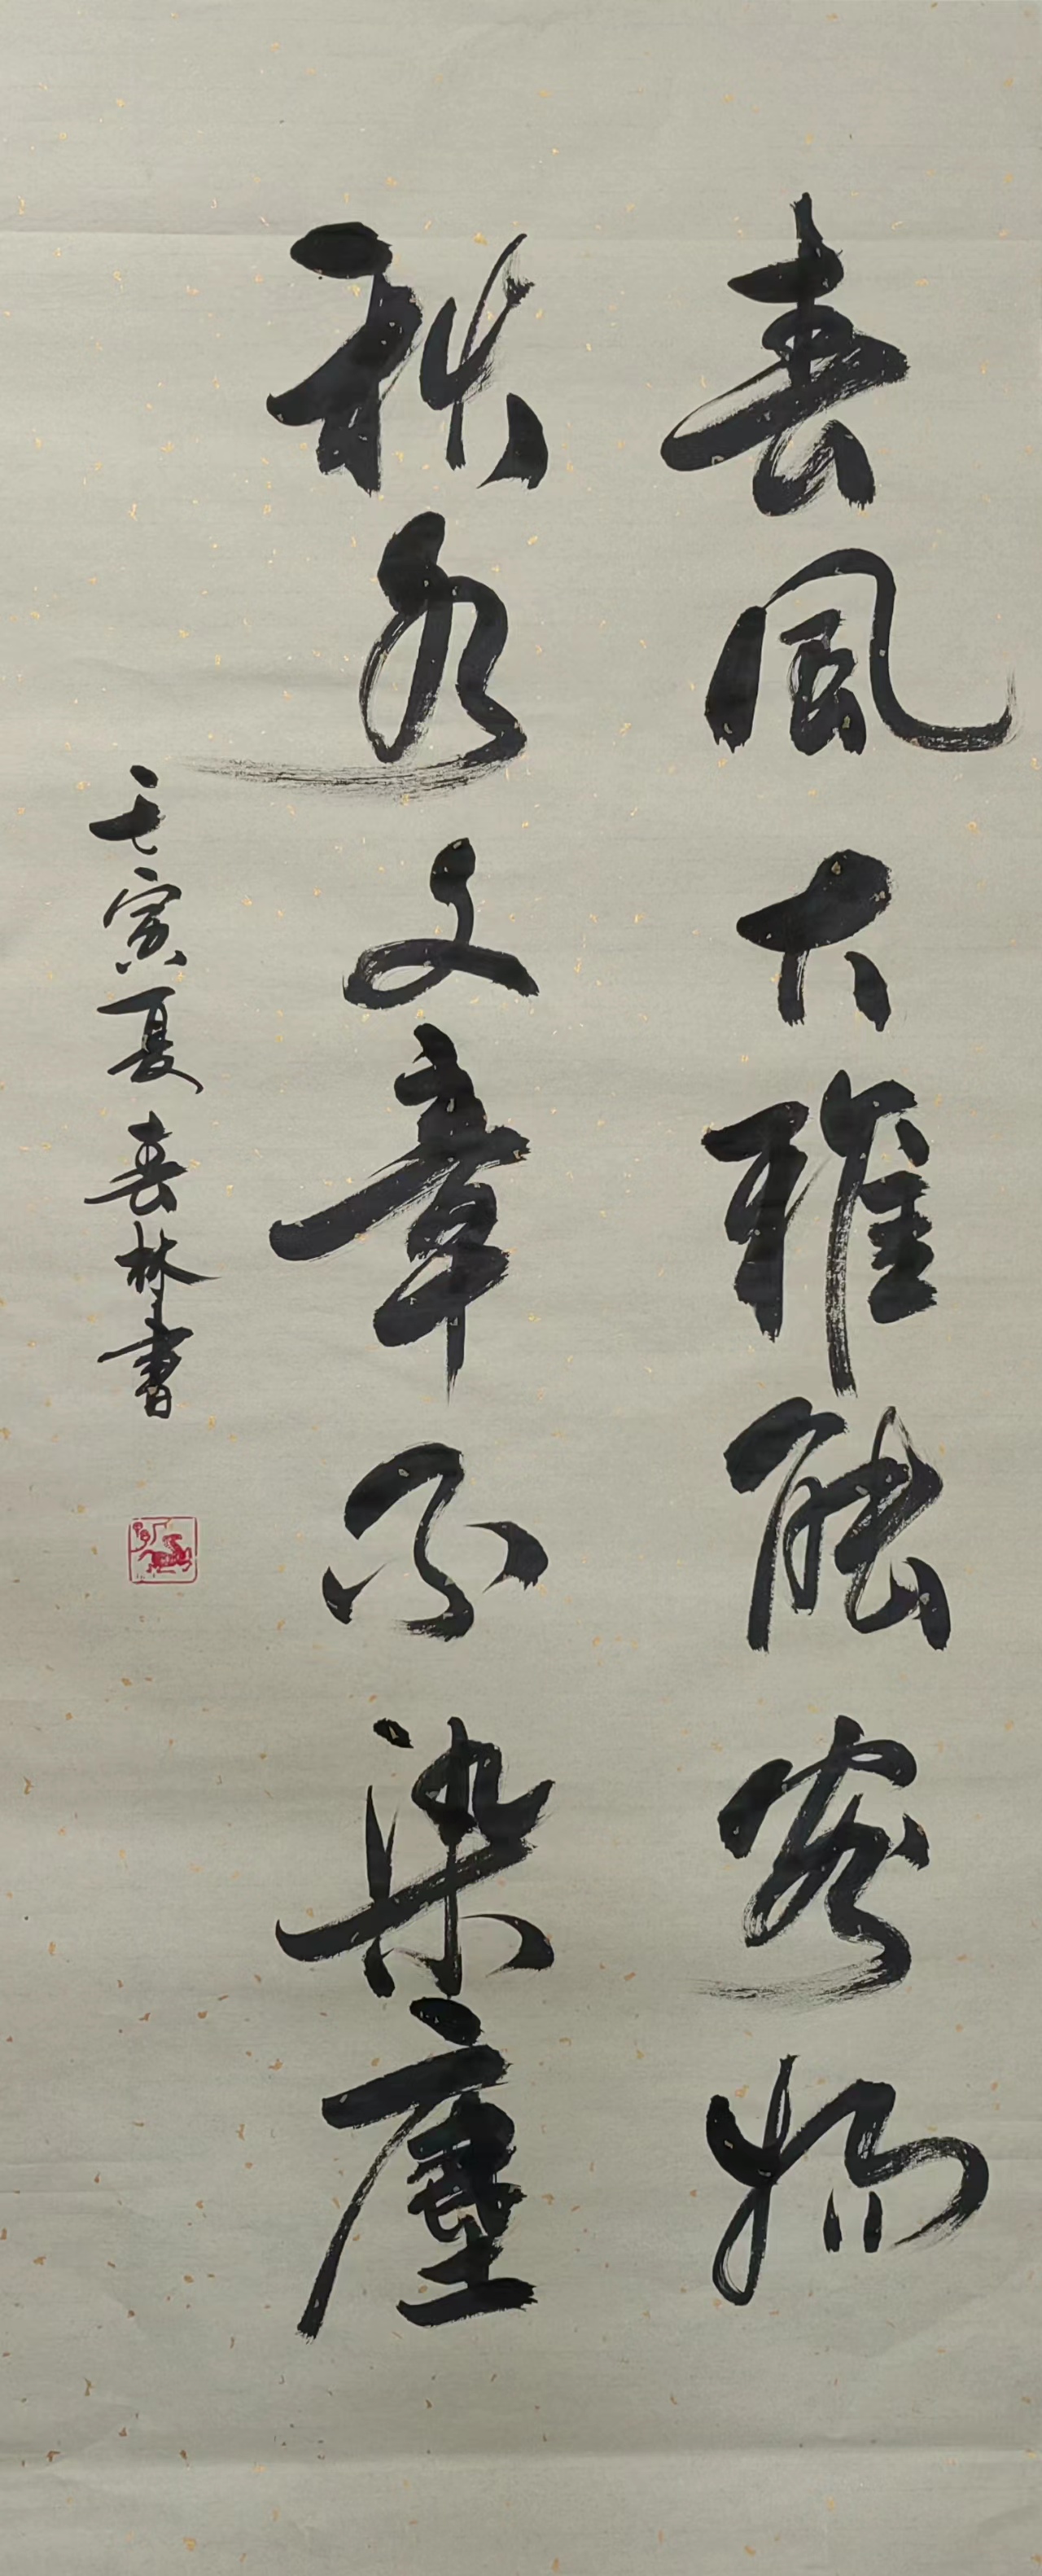 春風大雅能容物
秋水文章不染塵
壬寅夏春林書